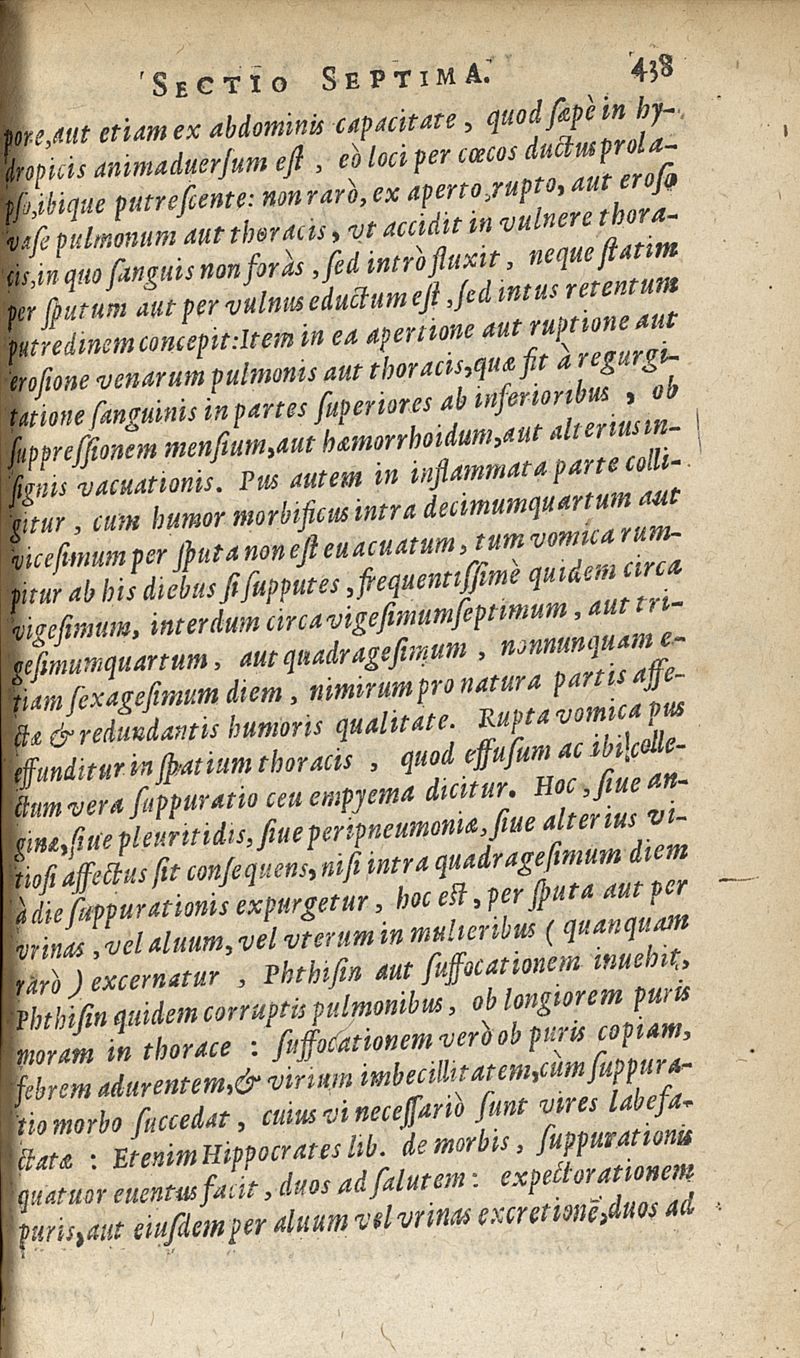 SECTIO SEPTIMA. 438
pore, aut etiam ex abdominis capacitate, quod sæpè in hy-
dropicis animaduersum est, eò loci per cœcos ductus prola-
pso, ibique putrescente: non rarò, ex aperto, rupto, aut eroso
vase pulmonum aut thoracis, vt accidit in vulnere thora-
cis, in quo sanguis non foràs, sed intrò fluxit, neque statim
per sputum aut per vulnus eductum est, sed intus retentum
putredinem concepit: Item in ea apertione aut ruptione aut
erosione venarum pulmonis aut thoracis, quæ fit à regurgi-
tatione sanguinis in partes superiores ab inferioribus, ob
suppressionem mensium, aut hæmorrhoidum, aut alterius in-
signis vacuationis. Pus autem in inflammata parte colli-
gitur, cum humor morbificus intra decimumquartum aut
vicesimum per sputa non est euacuatum, tum vomica rum-
pitur ab his diebus si supputes, frequentissimè quidem circa
vigesimum, interdum circa vigesimumseptimum, aut tri-
gesimumquartum, aut quadragesimum, nonnunquam e-
tiam sexagesimum diem, nimirum pro natura partis affe-
ctæ & redundantis humoris qualitate. Rupta vomica pus
effunditur in spatium thoracis, quod effusum ac ibi colle-
ctum vera suppuratio ceu empyema dicitur. Hoc, siue an-
ginæ, siue pleuritidis, siue peripneumoniæ, siue alterius vi-
tiosi affectus sit consequens, nisi intra quadragesimum diem
à die suppurationis expurgetur, hoc est, per sputa aut per
vrinas, vel aluum, vel vterum in mulieribus ( quanquam
rarò ) excernatur, Phthisin aut suffocationem inuehit,
Phthisin quidem corruptis pulmonibus, ob longiorem puris
moram in thorace : suffocationem verò ob puris copiam,
febrem adurentem, & virium imbecillitatem, cùm suppura-
tio morbo succedat, cuius vi necessariò sunt vires labefa-
ctatæ : Etenim Hippocrates lib. de morbis, suppurationis
quatuor euentus facit, duos ad salutem : expectorationem
puris, aut eiusdem per aluum vel vrinas excretionē, duos ad